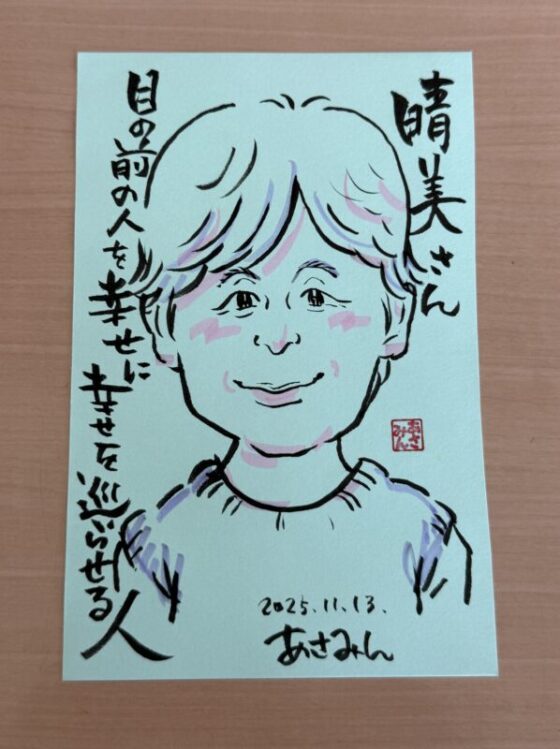 晴美さん
目の前の人を幸せに
幸せを巡らせる人
あさみん
2025.11.13.
あさみん